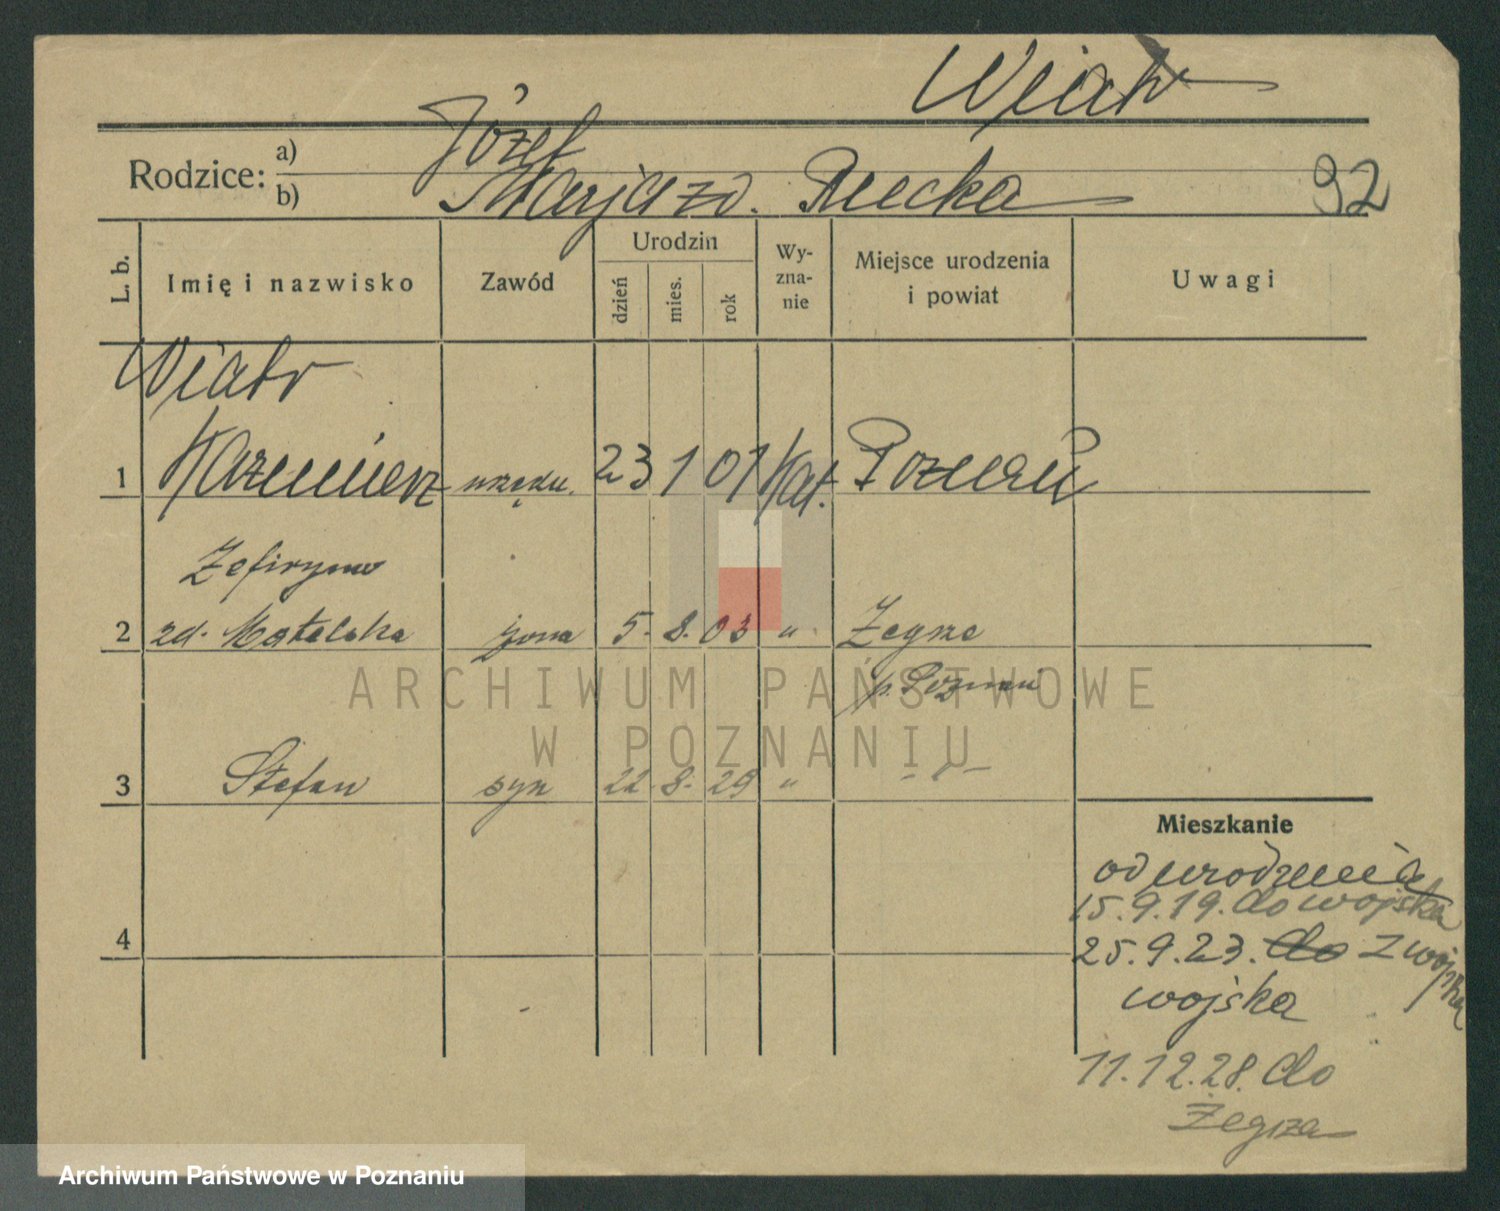 Wiatr
Rodzice: a) Józef
b) Marja zd. Rzecka
92
L. b.
Imię i nazwisko
Zawód
Urodzin
dzień
mies.
rok
Wy-
zna-
nie
Miejsce urodzenia
i powiat
Uwagi
Wiatr
1 Kazimierz urzędn. 23 1 01 Kat. Poznań
Zefiryna
2 zd. Matelska żona 5. 8. 03 " Żegrze
p. Poznań
3 Stefan syn 22 8. 29 " - " -
4
Mieszkanie
od urodzenia
15.9.19. do wojska
25.9.23. do z wojska
wojska
11.12.28. do
Żegrza
ARCHIWUM PAŃSTWOWE
W POZNANIU
Archiwum Państwowe w Poznaniu